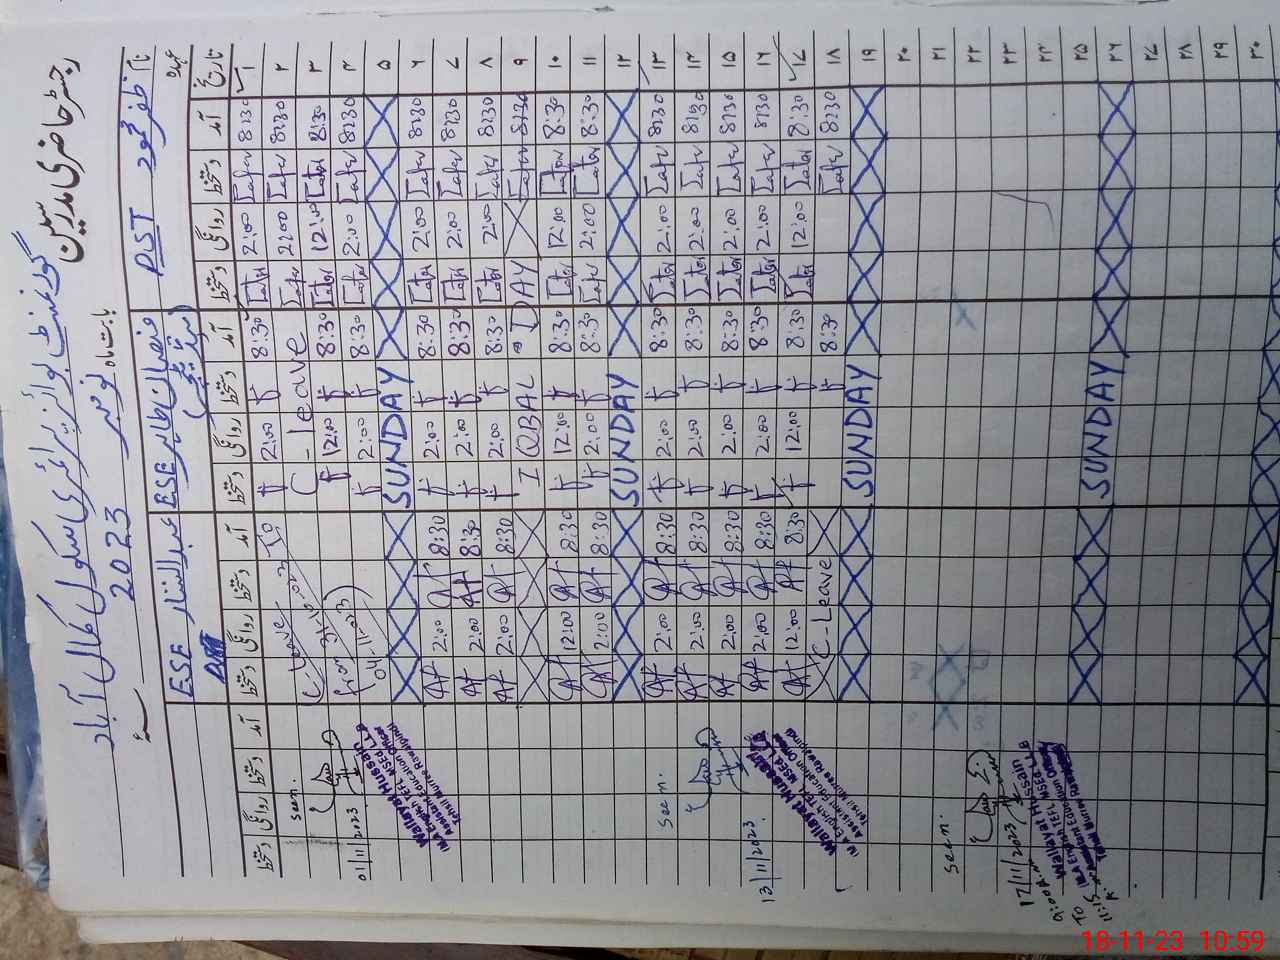 رجسٹر حاضری مدرسین
گورنمنٹ بوائز پرائمری سکول کمال آباد
بابت ماہ نومبر 2023
PST ESE ESE عبدالستار
تاریخ آمد دستخط روانگی دستخط آمد دستخط روانگی دستخط آمد دستخط روانگی دستخط آمد دستخط روانگی دستخط
۱ 8:30 Zafar 2:00 Zafar 8:30 2:00
۲ 8:30 Zafar 2:00 Zafar C-leave C leave seen.
۳ 8:30 Zafar 12:00 Zafar 8:30 12:00
۴ 8:30 Zafar 2:00 Zafar 8:30 2:00 04-11-023) 01/11/2023
۵ SUNDAY
Wallayat Hussain
M.A English TEFL, MSEd, LLB
Assistant Education Officer
Tehsil Murree Rawalpindi
۶ 8:30 Zafar 2:00 Zafar 8:30 2:00 8:30 2:00
۷ 8:30 Zafar 2:00 Zafar 8:30 2:00 8:30 2:00
۸ 8:30 Zafar 2:00 Zafar 8:30 2:00 8:30 2:00
۹ 8:30 Zafar IQBAL DAY
۱۰ 8:30 Zafar 12:00 Zafar 8:30 12:00 8:30 12:00
۱۱ 8:30 Zafar 2:00 Zafar 8:30 2:00 8:30 2:00
۱۲ SUNDAY
۱۳ 8:30 Zafar 2:00 Zafar 8:30 2:00 8:30 2:00 seen.
۱۴ 8:30 Zafar 2:00 Zafar 8:30 2:00 8:30 2:00
۱۵ 8:30 Zafar 2:00 Zafar 8:30 2:00 8:30 2:00
۱۶ 8:30 Zafar 2:00 Zafar 8:30 2:00 8:30 2:00 13/11/2023
۱۷ 8:30 Zafar 12:00 Zafar 8:30 12:00 8:30 12:00
Wallayat Hussain
M.A English TEFL, MSEd, LLB
Assistant Education Officer
Tehsil Murree Rawalpindi
۱۸ 8:30 Zafar 8:30 C-Leave
۱۹ SUNDAY
۲۰
۲۱ seen.
۲۲
۲۳ 17/11/2023
۲۴ 9:00 A.m
To
11:15
Wallayat Hussain
M.A English TEFL, MSEd, LLB
Assistant Education Officer
Tehsil Murree Rawalpindi
۲۵
۲۶ SUNDAY
۲۷
۲۸
۲۹
۳۰
18-11-23 10:59